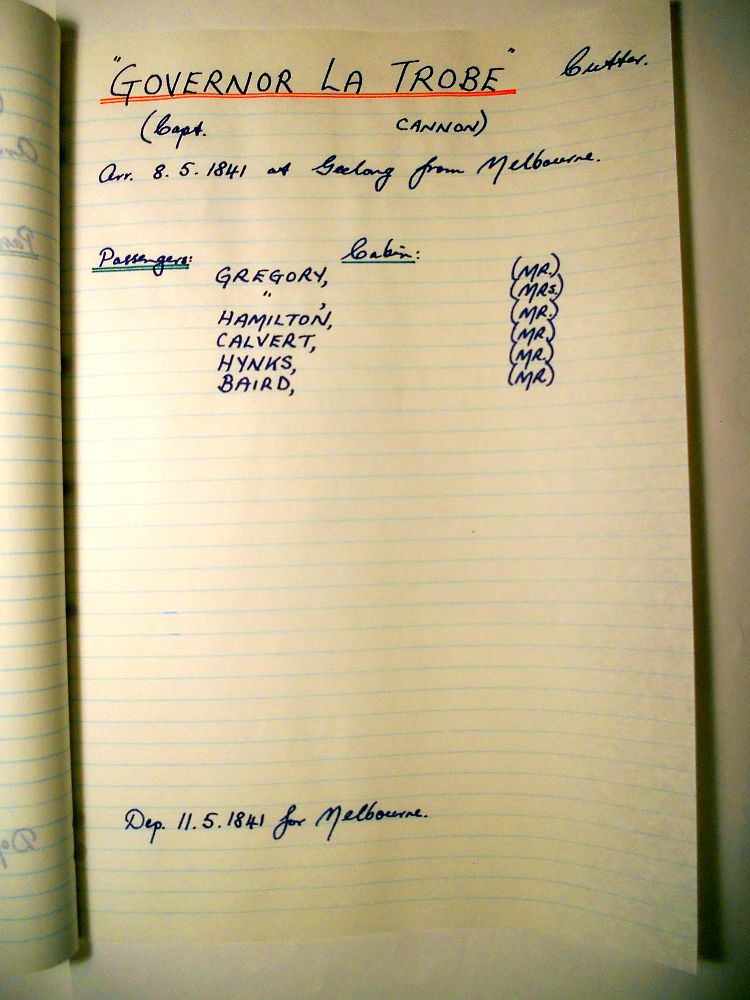 "GOVERNOR LA TROBE" Cutter.
(Capt. CANNON)
Arr. 8.5.1841 at Geelong from Melbourne.
Passengers: Cabin:
GREGORY, (MR.)
" , (MRS.)
HAMILTON, (MR.)
CALVERT, (MR.)
HYNKS, (MR.)
BAIRD, (MR.)
Dep. 11.5.1841 for Melbourne.